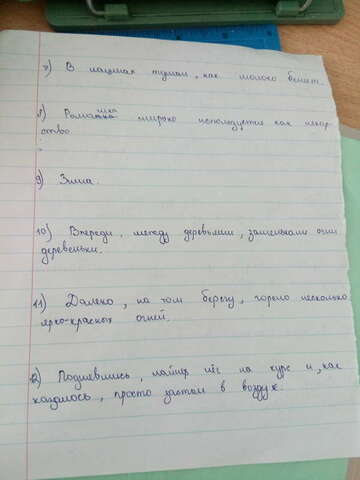 7) В лощинах туман, как молоко белеет.
шка
8) Ромашка широко используется как лекар-
ство
9) Зима.
10) Впереди, между деревьями, замелькали огни
деревеньки.
11) Далеко, на том берегу, горело несколько
ярко-красных огней.
12) лёг на курс и, как
казалось, просто застыл в воздухе.